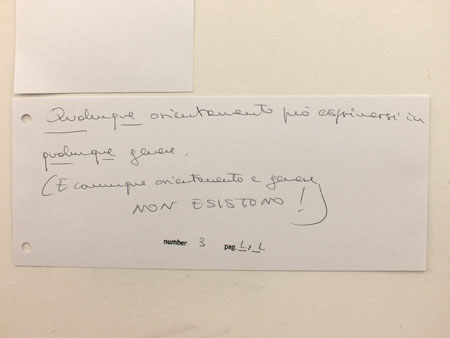 Qualunque orientamento può esprimersi in
qualunque genere.
(E comunque orientamento e genere
NON ESISTONO!)
number 3 pag. 1,1